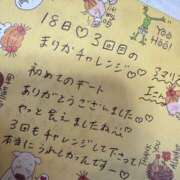 18日♡3回目の
まりかチャレンジ♡
Yoo
Hoo!
初めてのデート
ありがとうございました
やっと会えましたね
3回もチャレンジして下さって
本当にうれしかったですー♡